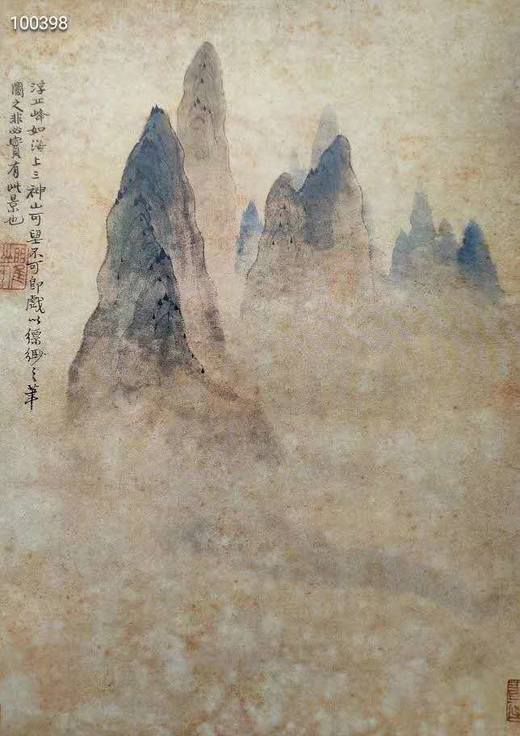 100398
浮丘峰如海上三神山可望不可即戲以縹緲之筆
圖之非必實有此景也